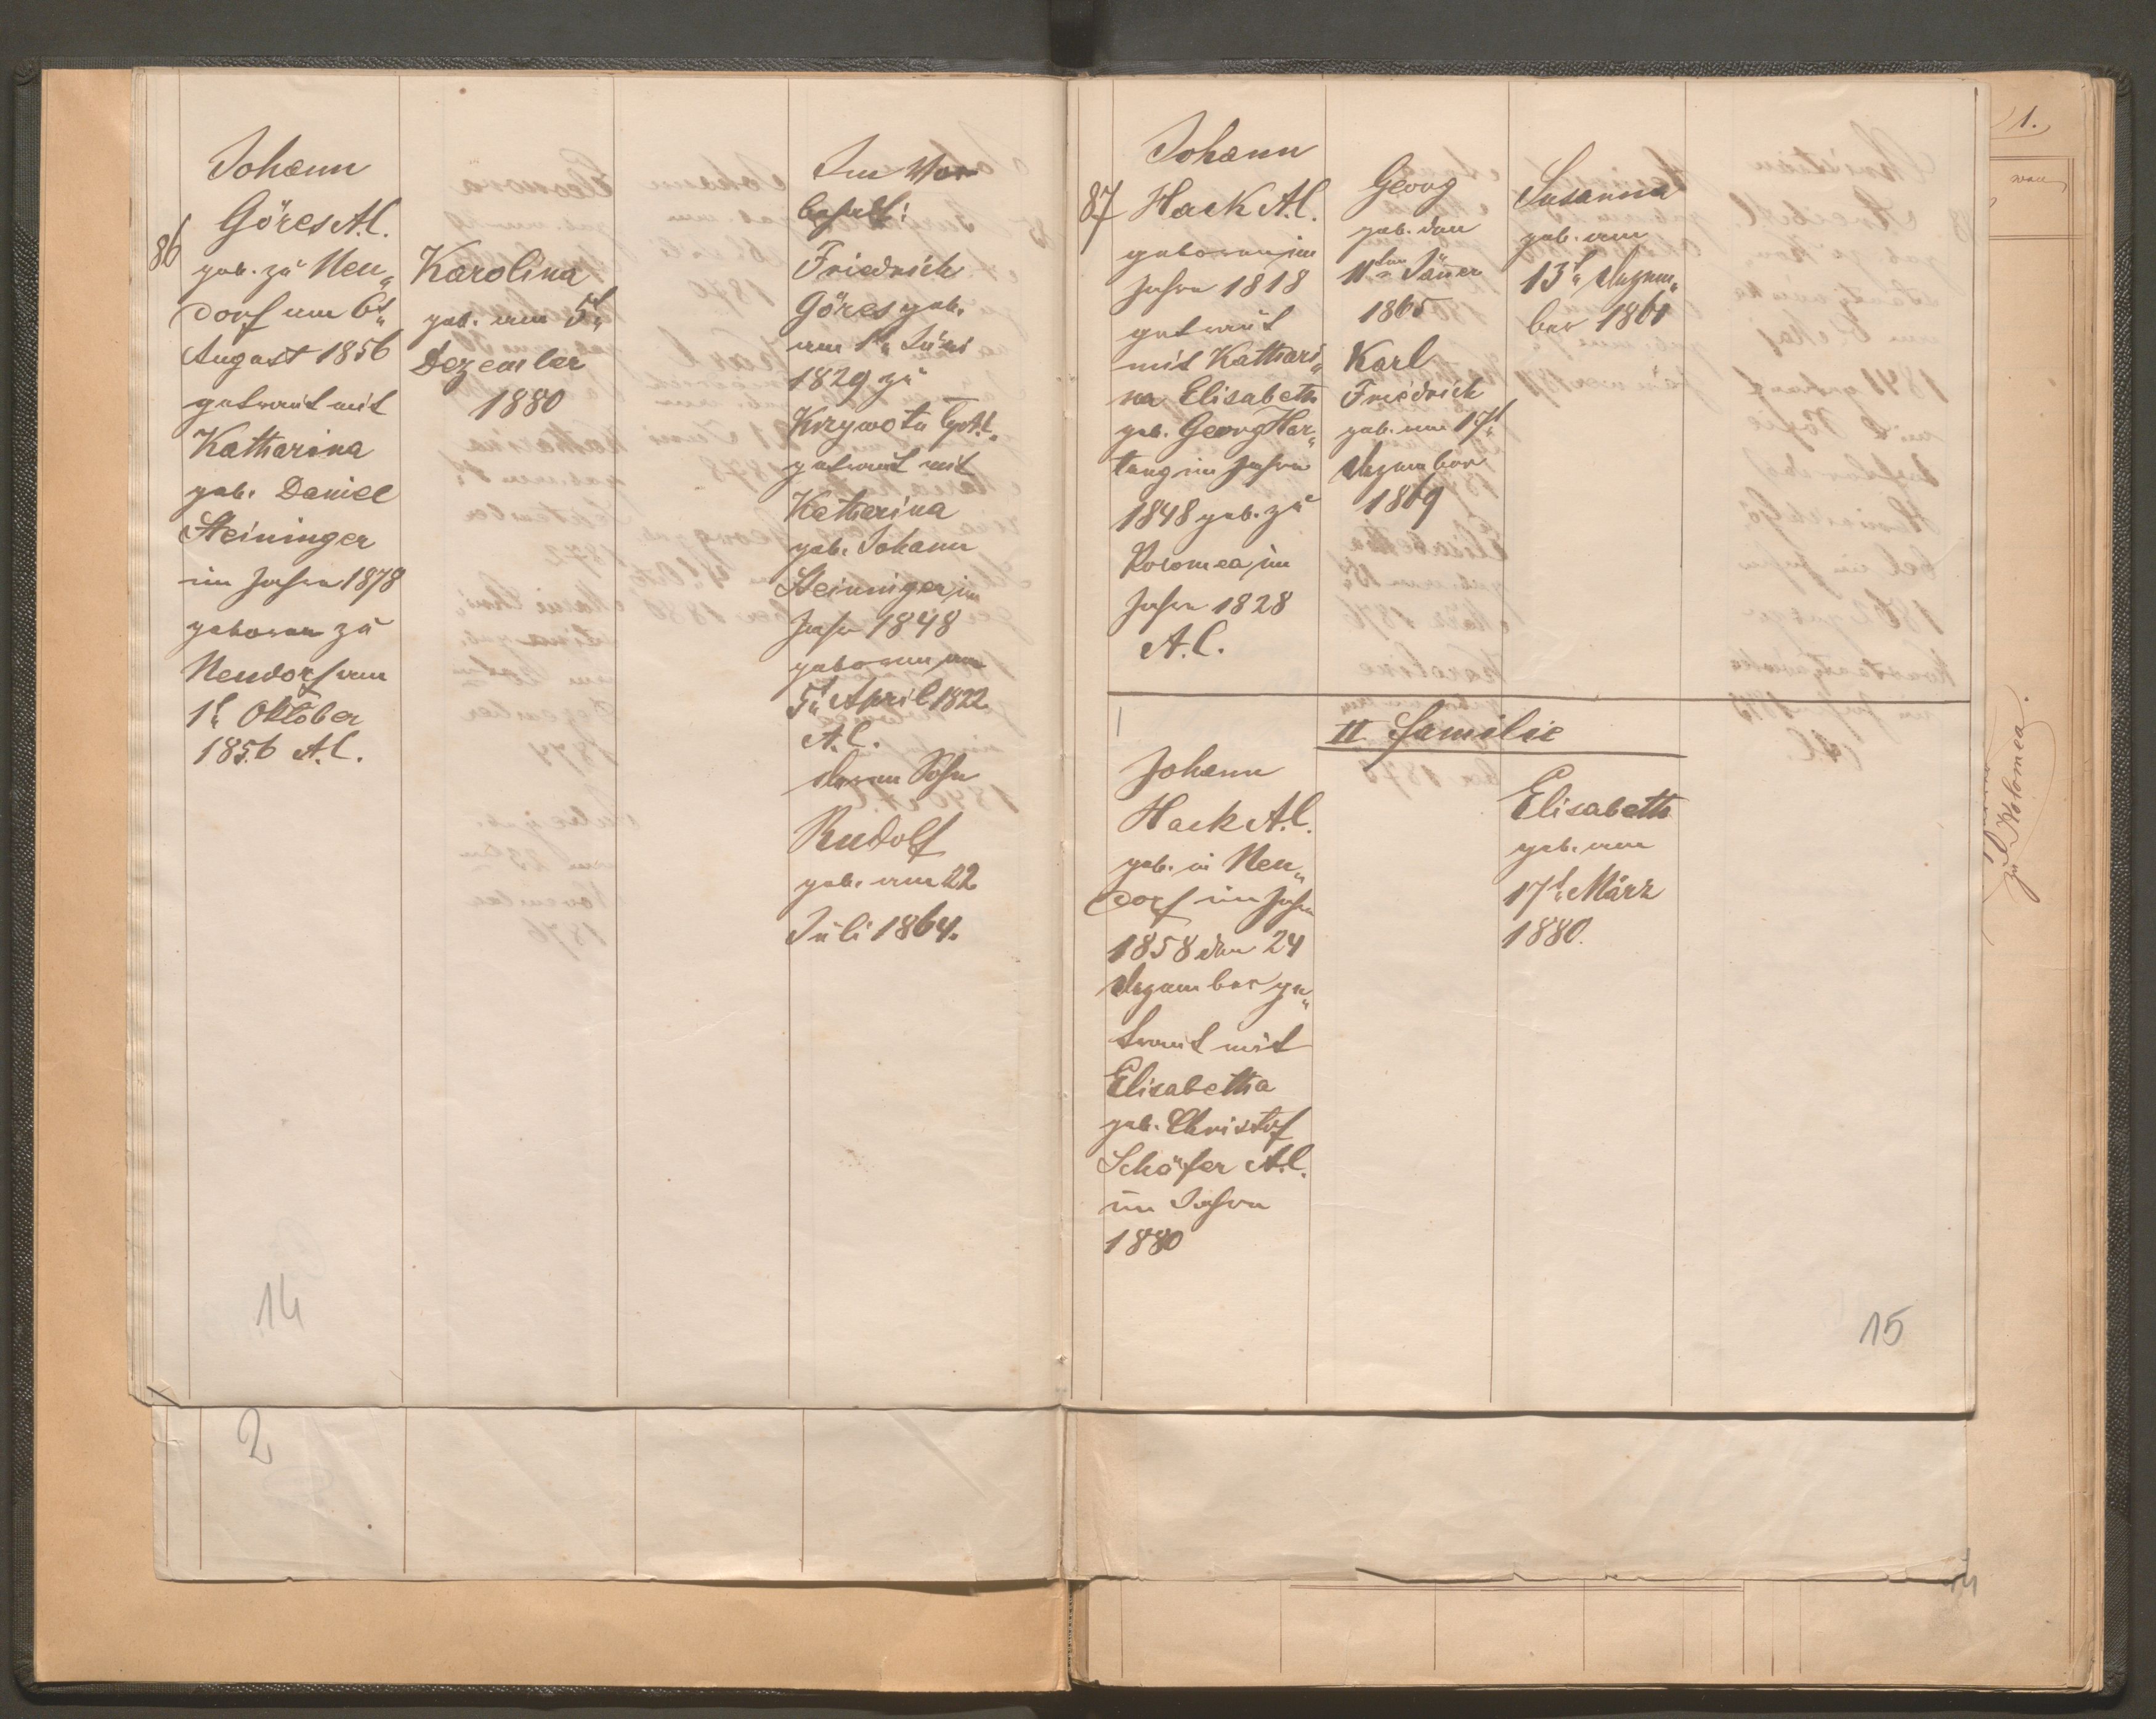 86
Johann
Göres A.C.
geb. zu Neu„
dorf am 6t„
August 1856
getraut mit
Katharina
geb. Daniel
Steininger
im Jahre 1878
geboren zu
Neudorf am
1t„ Oktober
1856 A.C.
Karolina
geb. am 5t„
Dezember
1880
Im Vor
behalt:
Friedrich
Göres geb.
am 1t„ Juni
1829 zu
getraut mit
Katharina
geb. Johann
Steininger im
Jahr 1848
geboren am
5t„ April 1822
A.C.
deren Sohn
Rudolf
geb. am 22
Juli 1864.
14
2
87
Johann
Hack A.C.
geboren im
Jahre 1818
getraut
mit Kathari„
na Elisabeth
geb. Georg Har„
tung im Jahre
1848 geb. zu
Kolomea im
Jahre 1828
A.C.
Georg
geb. den
11ten Jäner
1865
Karl
Friedrich
geb. am 17t„
Dezember
1869
Susanna
geb. am
13t„ Dezem„
ber 1861
II Familie
Johann
Hack A.C.
geb. in Neu„
dorf im Jahre
1858 den 24
Dezember ge„
traut mit
Elisabetha
geb. Christof
Schäfer A.C.
im Jahre
1880
Elisabeth
geb. am
17t„ März
1880.
15
1.
zu Kolomea.
14